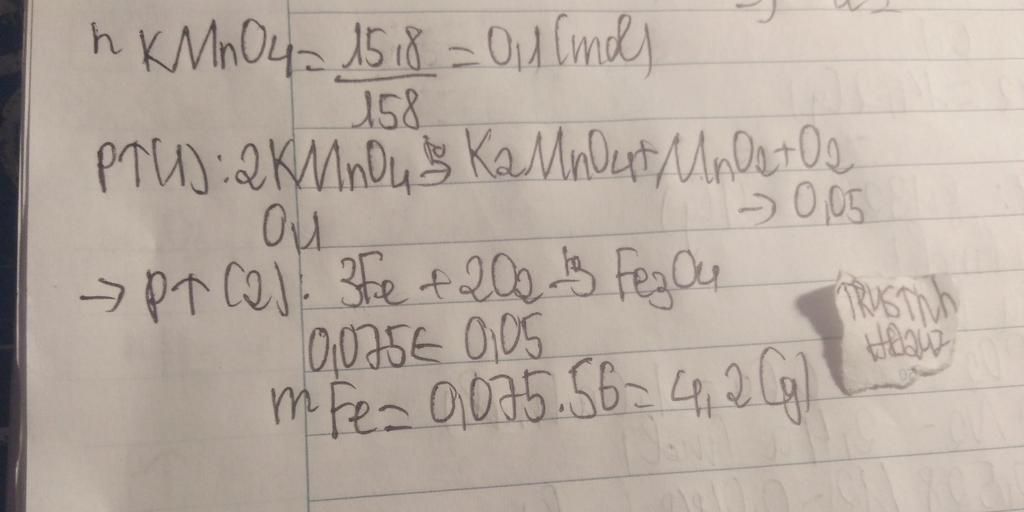 n KMnO4 = 15,8 / 158 = 0,1 (mol)
PT(1): 2KMnO4 to→ K2MnO4 + MnO2 + O2
0,1 → 0,05
→ PT (2): 3Fe + 2O2 to→ Fe3O4
0,075 ← 0,05
m Fe = 0,075.56 = 4,2 (g)